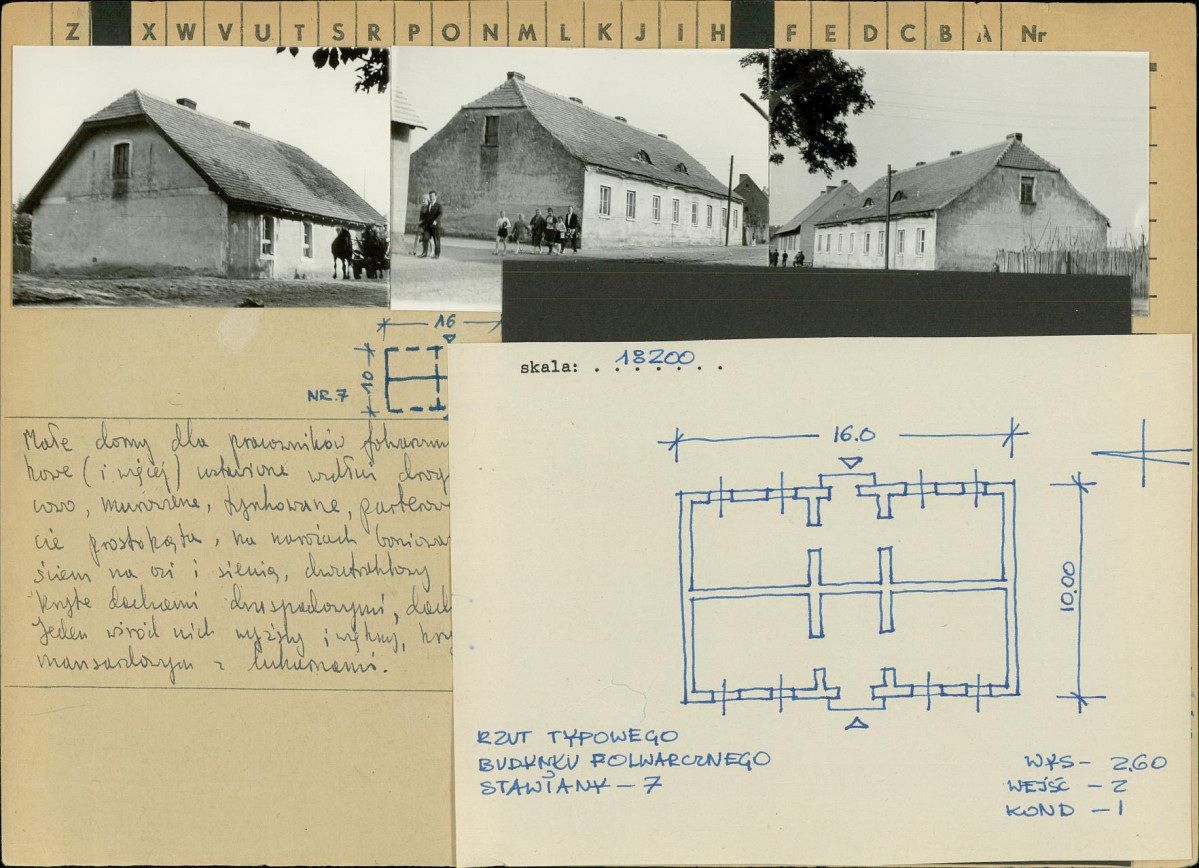 Z X W V U T S R P O N M L K J I H F E D C B A Nr
16
10
NR.7
Małe domy dla pracowników
(i więcej) ustawione wzdłuż
murowane, tynkowane,
prostokąta, na narożach
na osi i sienią, dwutraktowy
kryte dachami dwuspadowymi,
Jeden wśród nich wyższy i
mansardowym z lukarnami.
skala: . . . . . . .
16.0
10,00
RZUT TYPOWEGO
BUDYNKU FOLWARCZNEGO
STAWIANY – 7
WYS – 2,60
WEJŚĆ – 2
KOND – 1